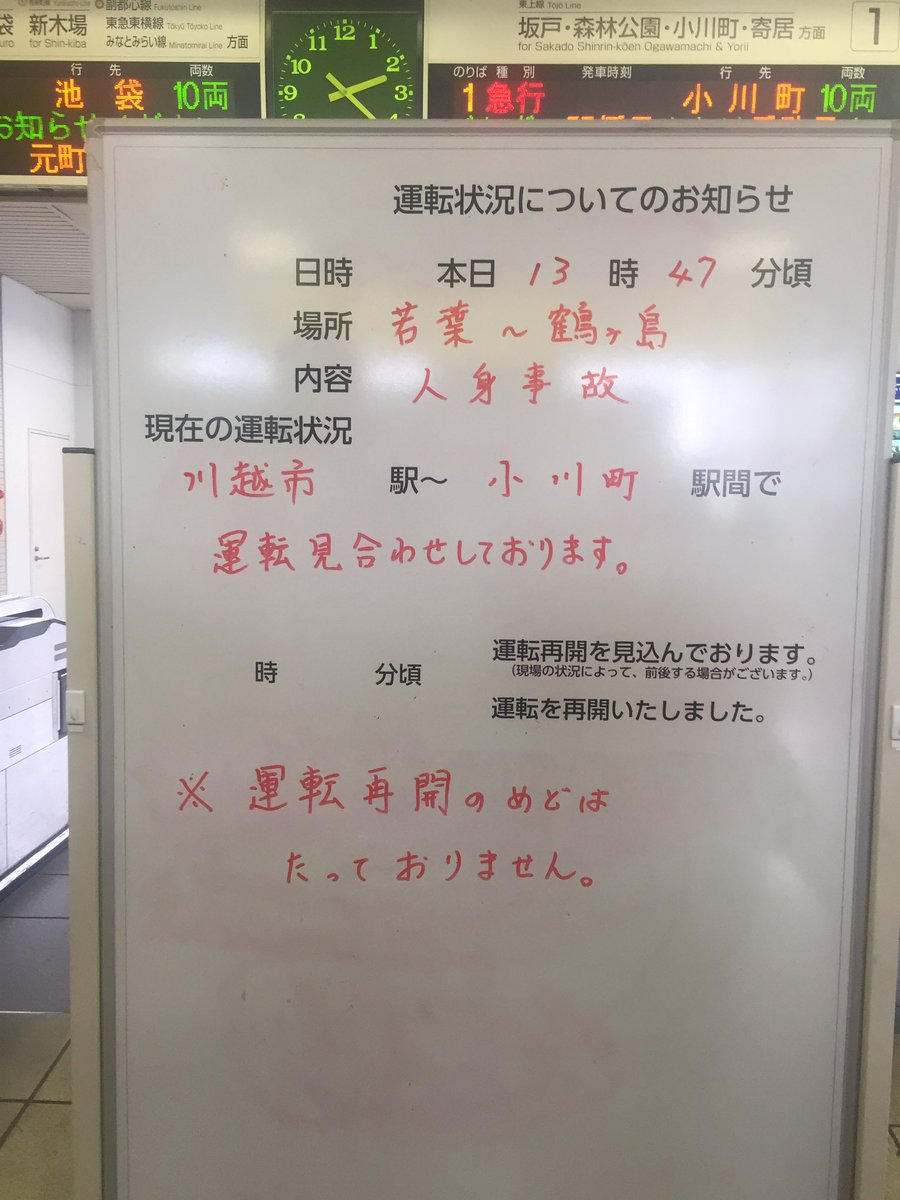 副都心線 Fukutoshin Line
新木場 東急東横線 Tōkyū Tōyoko Line
for Shin-kiba みなとみらい線 Minatomirai Line 方面
東上線 Tojo Line
坂戸・森林公園・小川町・寄居 方面 1
for Sakado Shinrin-kōen Ogawamachi & Yorii
行先 両数
池袋 10両
お知らせ
元町
12 1 2 3 4 9 10 11
のりば 種別 発車時刻 行先 両数
1 急行 小川町 10両
運転状況についてのお知らせ
日時 本日 13 時 47 分頃
場所 若葉~鶴ヶ島
内容 人身事故
現在の運転状況
川越市 駅~ 小川町 駅間で
運転見合わせしております。
時 分頃 運転再開を見込んでおります。
(現場の状況によって、前後する場合がございます。)
運転を再開いたしました。
※ 運転再開のめどは
たっておりません。